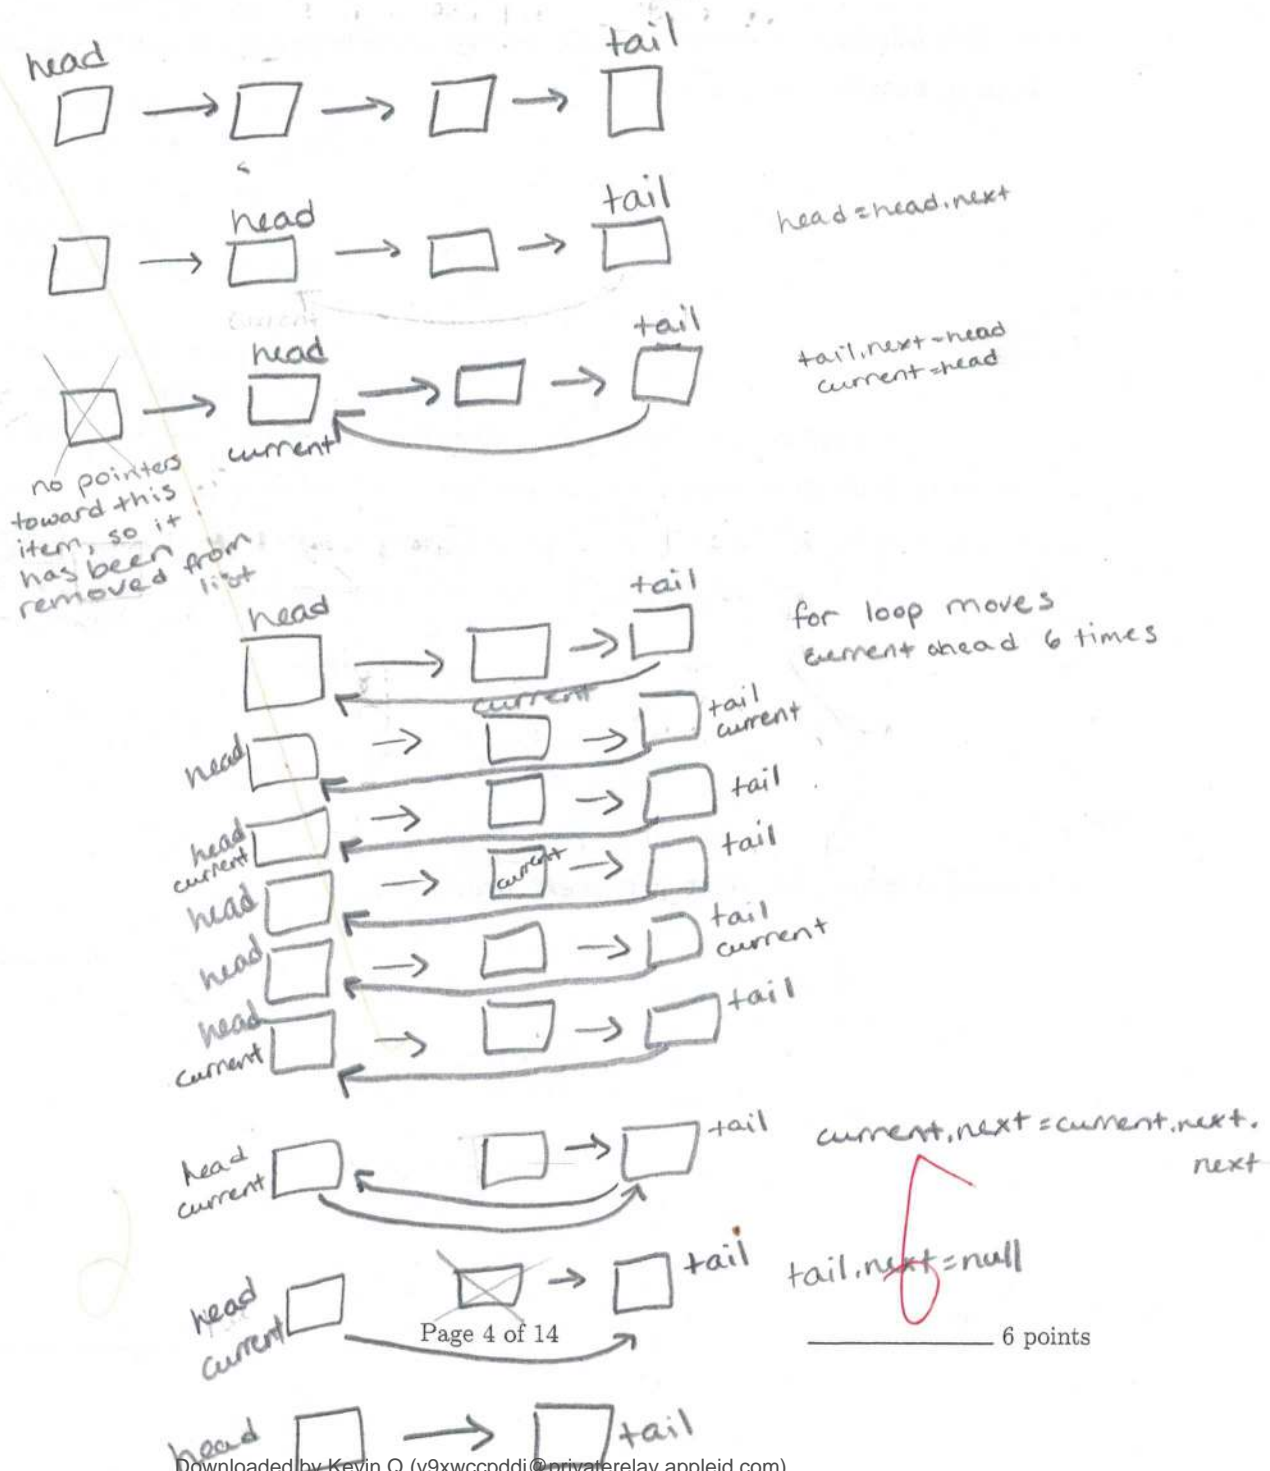 head
tail
head
tail
head=head.next
head
tail
tail.next=head
current=head
current
no pointers
toward this
item, so it
has been
removed from
list
head
tail
for loop moves
current ahead 6 times
current
head
tail
current
head
current
tail
head
current
tail
head
tail
current
head
current
tail
head
current
tail
current.next=current.next.
next
head
current
tail
tail.next=null
Page 4 of 14
6 points
head
tail
Downloaded by Kevin Q (v9xwccpddj@privaterelay.appleid.com)